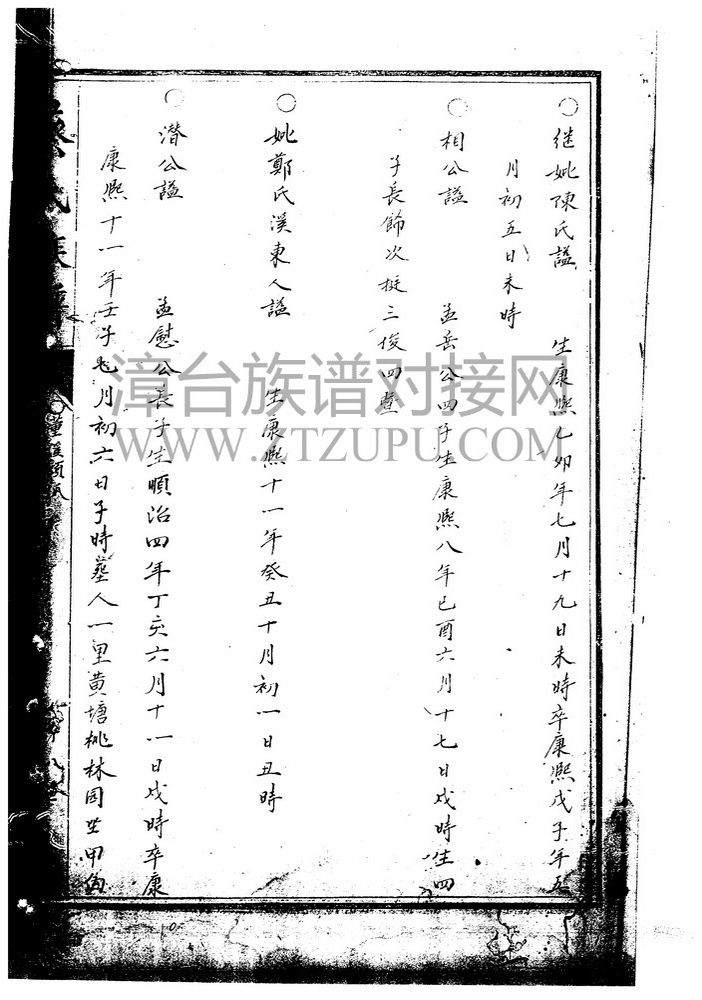 ○继妣陳氏謚 生康熙乙卯年七月十九日未時卒康熙戊子年五
月初五日未時
○相公謚 孟岳公四子生康熙八年己酉六月十七日戌時生四
子長飾次挺三俊四
○妣鄭氏溪東人謚 生康熙十一年癸丑十月初一日丑時
○潜公謚 孟慰公長子生順治四年丁亥六月十一日戌時卒康
康熙十一年壬子七月初六日子時墓人一里黄塘桃林园坐甲
漳台族谱对接网
WWW.ZTZUPU.COM